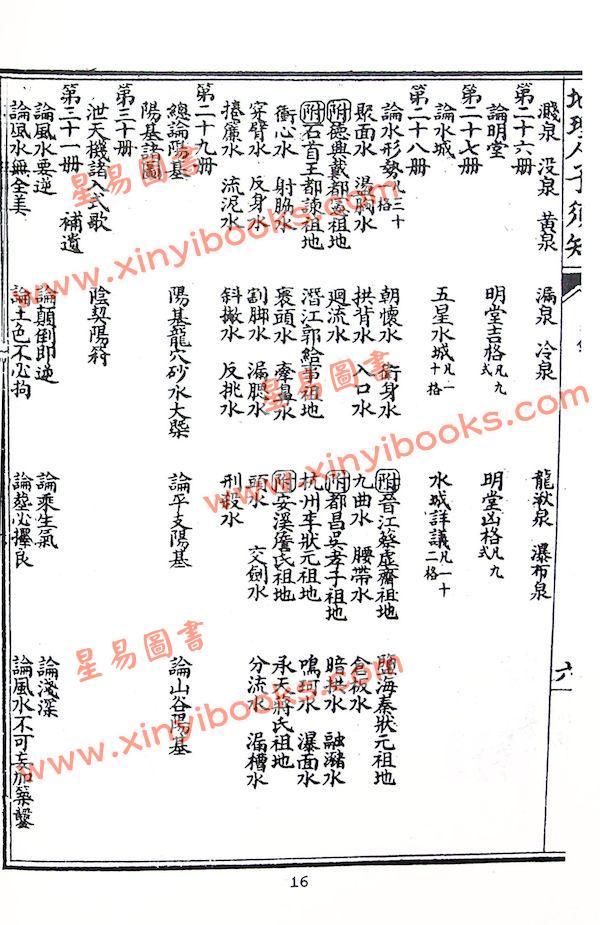 地理人子須知
六
濺泉 没泉 黄泉 漏泉 冷泉 龍湫泉 瀑布泉
第二十六册
論明堂 明堂吉格凡九式 明堂凶格凡九式
第二十七册
論水城 五星水城凡一十格 水城詳議凡一十二格
第二十八册
論水形勢凡三十格 朝懷水 衛身水 附晉江蔡虛齋祖地 鹽海秦狀元祖地
聚面水 盪胸水 拱背水 入口水 九曲水 腰帶水 倉板水
附德興戴都憲祖地 廻流水 附都昌吳孝子祖地 暗拱水 融瀦水
附石首王都諫祖地 潛江郭給事祖地 杭州李狀元祖地 鳴珂水 瀑面水
衝心水 射脇水 裹頭水 牽鼻水 附安溪詹氏祖地 承天蔣氏祖地
穿臂水 反身水 割脚水 漏腮水 頭水 交劍水 分流水 漏槽水
捲簾水 流泥水 斜撇水 反挑水 刑殺水
第二十九册
總論陽基 陽基龍穴砂水大槩 論平支陽基 論山谷陽基
陽基諸圖
第三十册
泄天機諸入式歌 陰契陽符
第三十一册 補遺
論風水要逆 論顛倒即逆 論乘生氣 論淺深
論風水無全美 論土色不必拘 論塟必擇良 論風水不可妄加築鑿
16
星易圖書
www.xinyibooks.com
星易圖書
www.xinyibooks.com
星易圖書
www.xinyibooks.com
星易圖書
www.xinyibooks.com